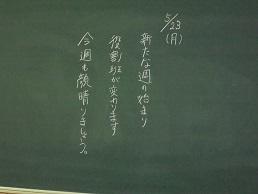 5/23
(月)
新たな週の始まり
役割班が変わります
今週も顔晴りましょう。